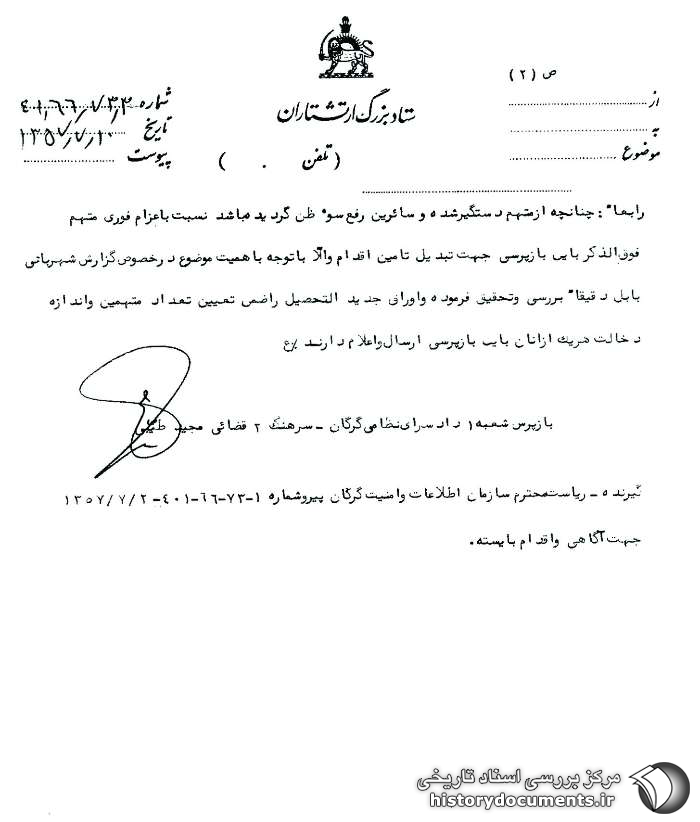 ص (۲)
از
به
موضوع
ستاد بزرگ ارتشتاران
(تلفن . )
شماره ۴۰۱,۶۶,۷۳,۳
تاریخ ۱۳۵۷,۷,۱۰
پیوست
رابعاً : چنانچه از متهم دستگیر شده و سائرین رفع سوء ظن گردیده باشد نسبت باعزام فوری متهم
فوق‌الذکر باین بازپرسی جهت تبدیل تامین اقدام والا با توجه باهمیت موضوع در خصوص گزارش شهربانی
بابل دقیقاً بررسی وتحقیق فرموده واوراق جدید التحصیل راضمن تعیین تعداد متهمین واندازه
دخالت هریک ازانان باین بازپرسی ارسال واعلام دارند
بازپرس شعبه ۱ دادسرای نظامی گرگان - سرهنگ ۲ قضائی مجید
گیرنده - ریاست محترم سازمان اطلاعات وامنیت گرگان پیروشماره ۱-۷۳-۶۶-۴۰۱-۱۳۵۷/۷/۲
جهت آگاهی واقدام بایسته.
مرکز بررسی اسناد تاریخی
historydocuments.ir